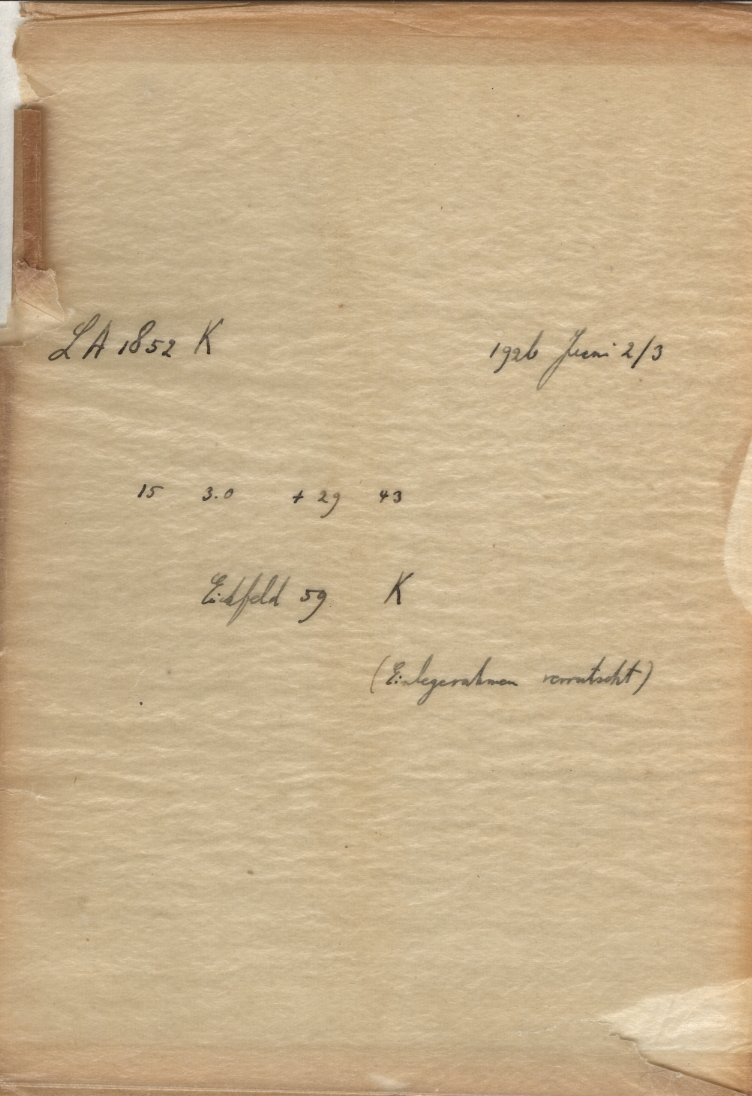 LA 1852 K 1926 Juni 2/3
15 3.0 + 29 43
Eichfeld 59 K
(Einlegerahmen verrutscht)